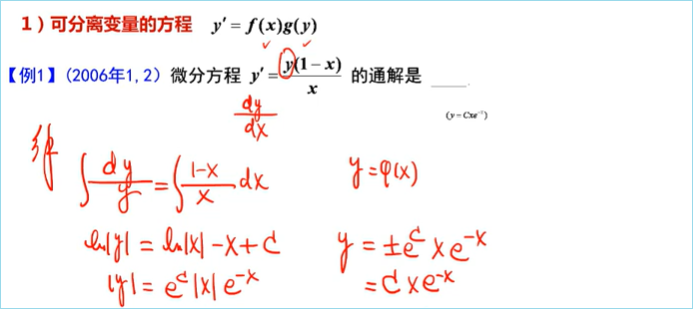 1）可分离变量的方程 y′ = f(x)g(y)
【例1】(2006年1,2) 微分方程 y′ = y(1−x)/x 的通解是 ____.
(y = Cxe⁻ˣ)
dy/dx
解 ∫ dy/y = ∫ (1-x)/x dx
y = φ(x)
ln|y| = ln|x| - x + C
y = ±e^C x e^-x
|y| = e^C |x| e^-x
= C x e^-x